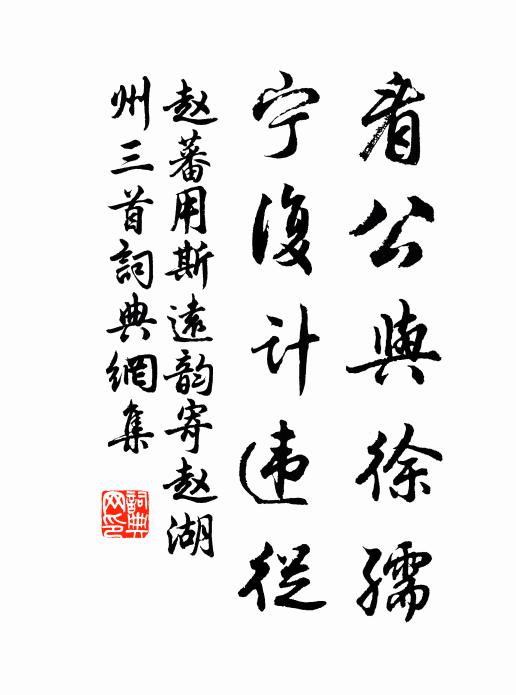 看公與徐孺
宁復计违從
赵蕃用斯遠韵寄赵湖
州三首詞典網集
詞典
网印